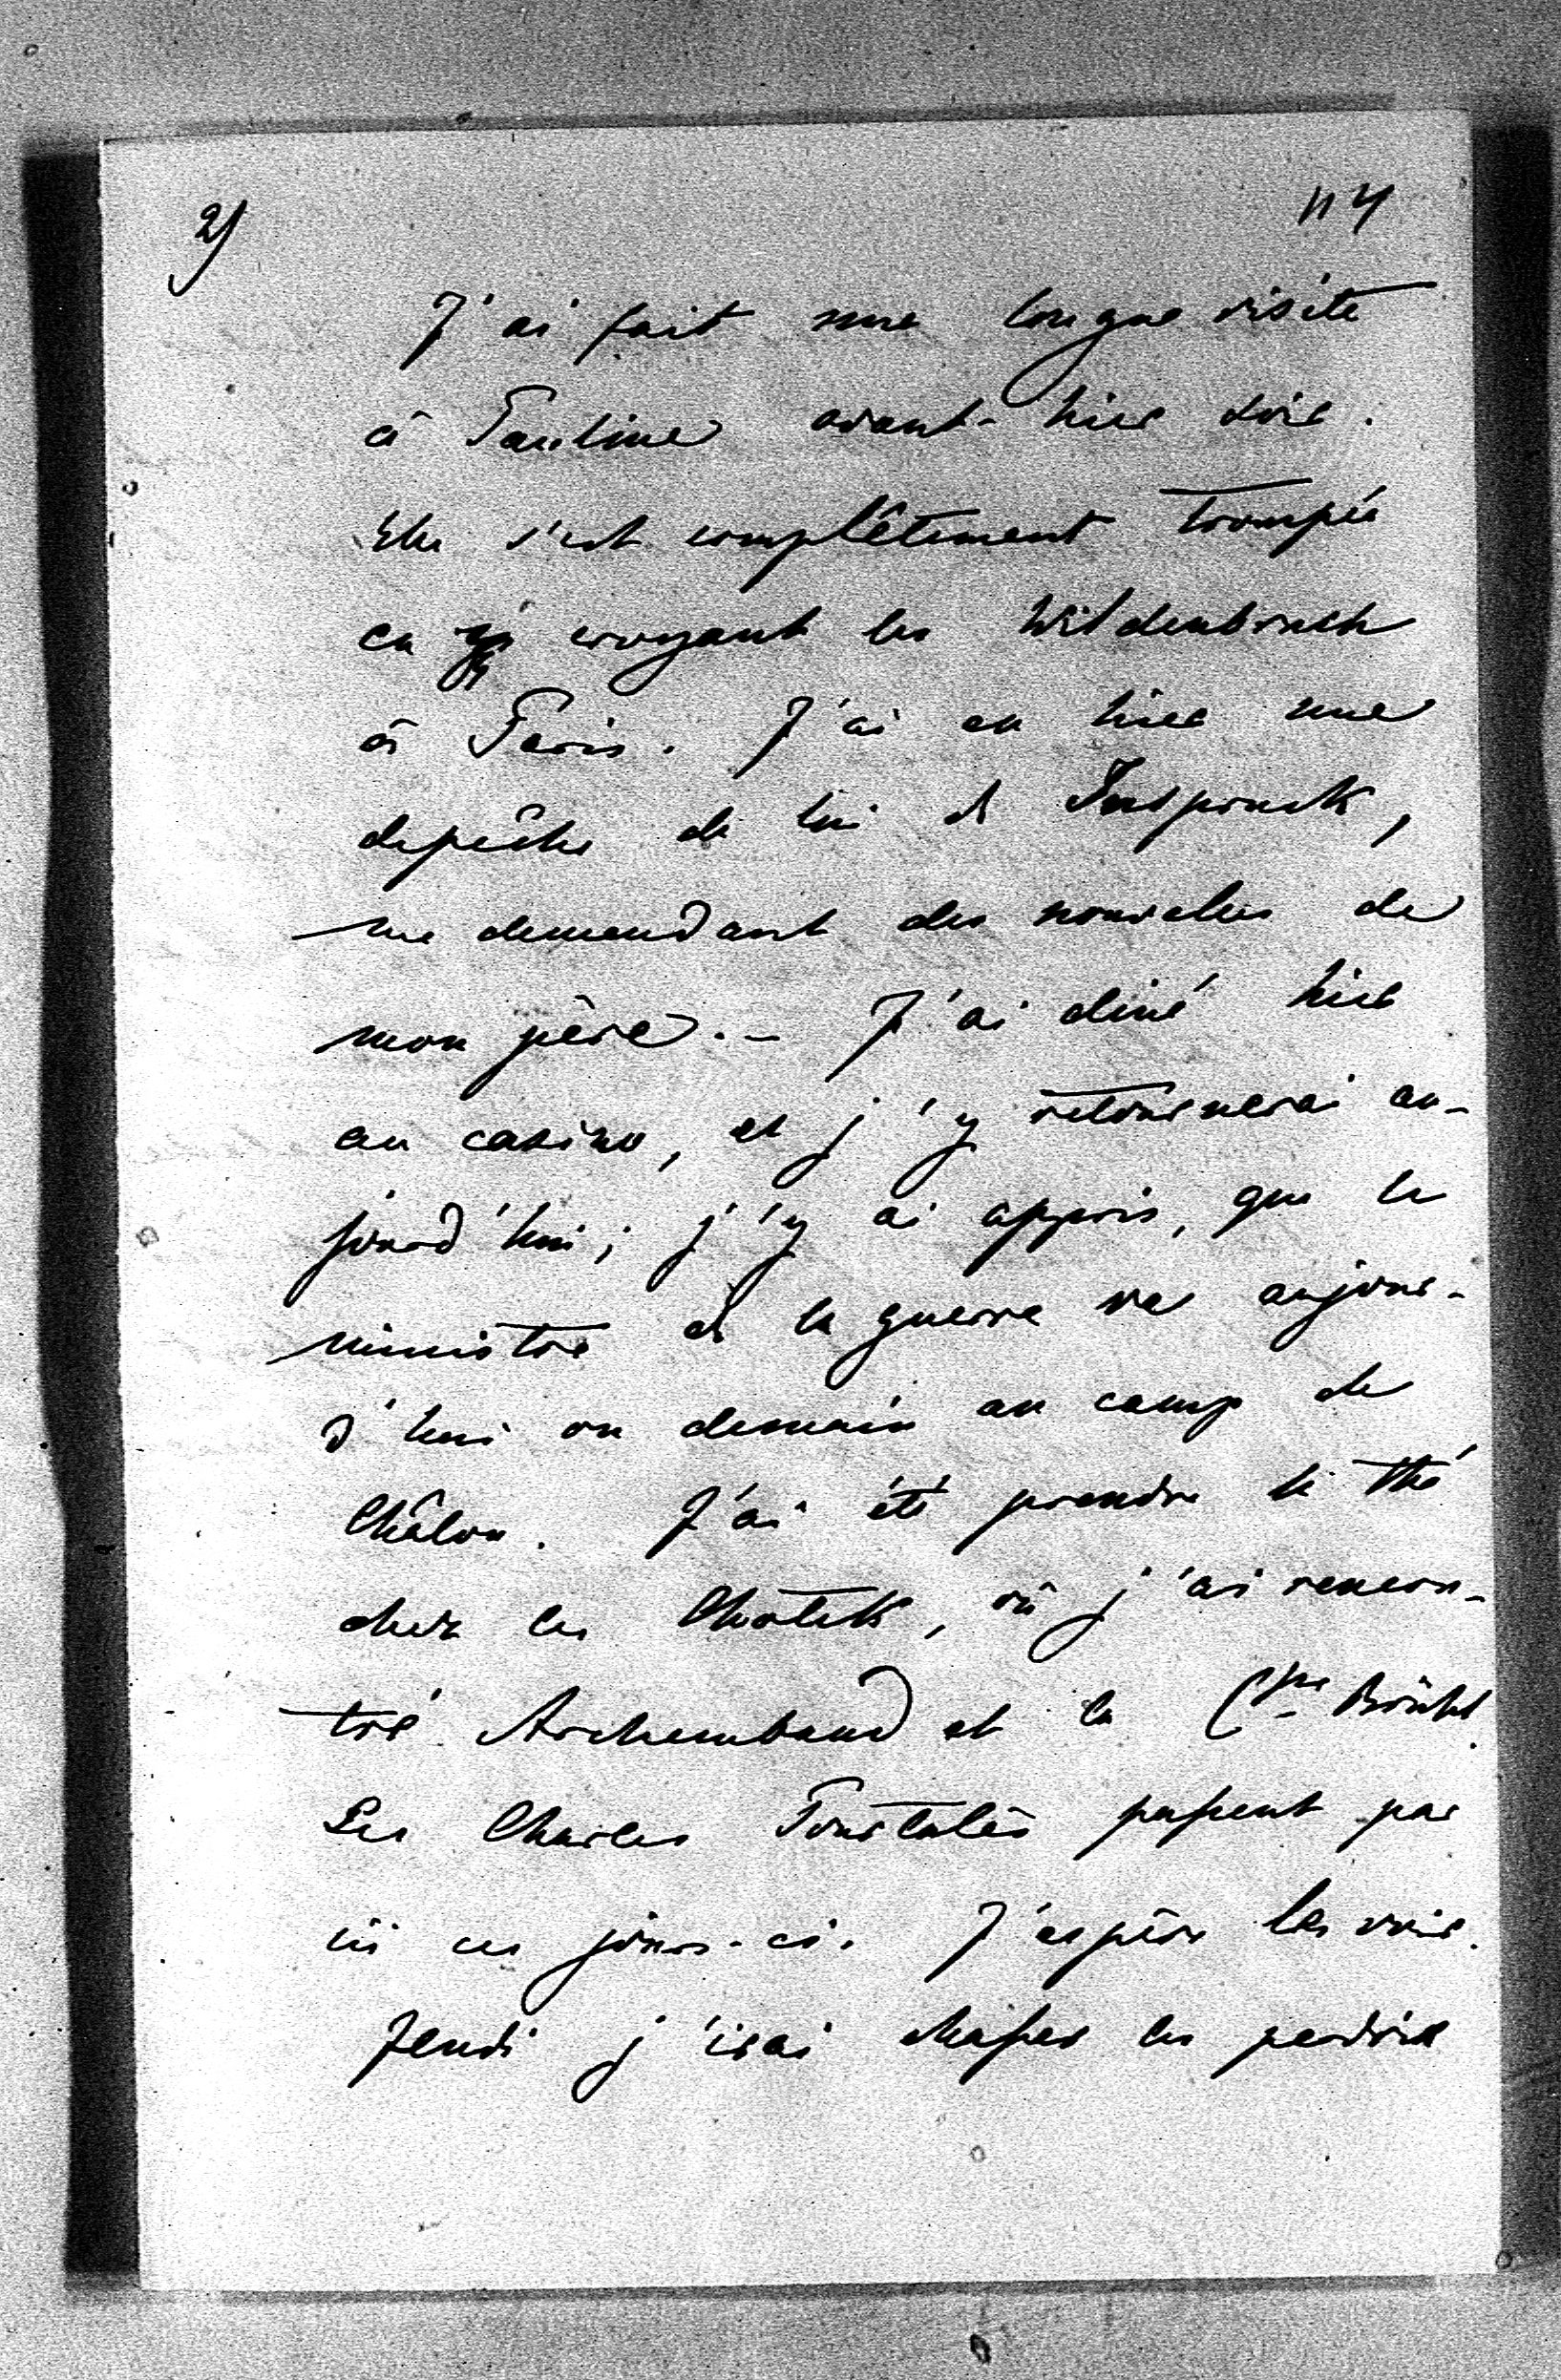 2) 114
J'ai fait une longue visite
à Pauline avant-hier soir.
Elle s'est complêtement trompée
en croyant les Wildenbruch
à Paris. J'ai eu hier une
depêche de lui de Inspruck,
me demandant des nouvelles de
mon père. – J'ai diné hier
au casino, et j'y retournerai au-
jourd'hui; j'y ai appris, que le
ministre de la guerre va aujour-
d'hui ou demain au camp de
Châlon. J'ai été prendre le thé
chez les Chotek, où j'ai rencon-
tré Archembaud et la Csse Brühl.
Les Charles Pourtalès passent par
ici ces jours-ci. J'espère les voir.
Jeudi j'irai chasser les perdrix